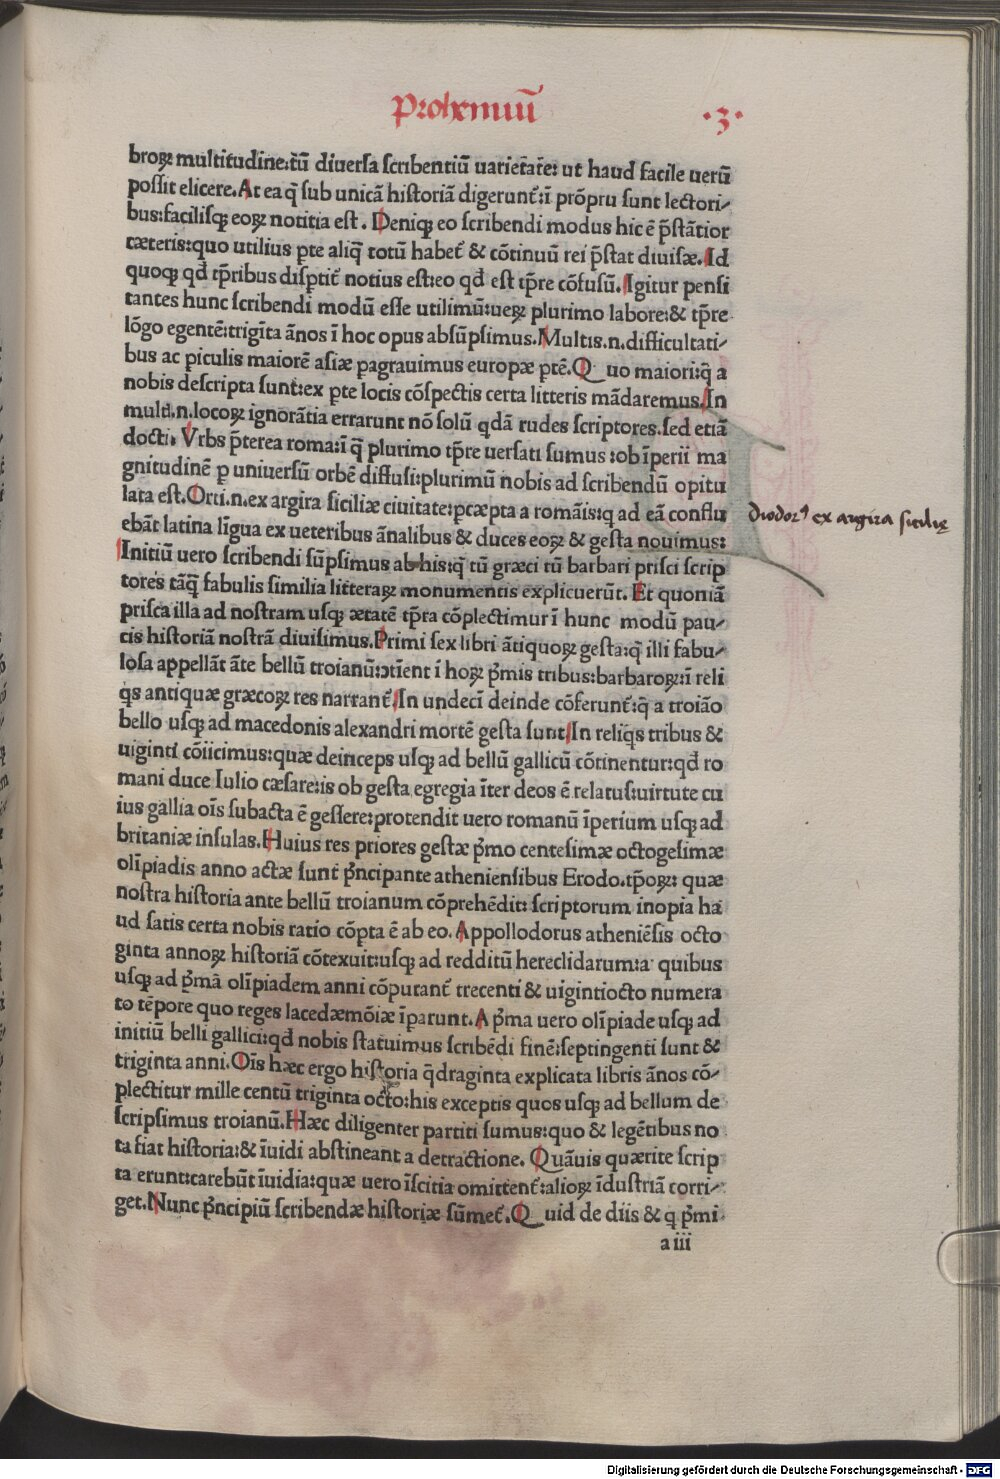 Prohemiũ
·3·
broꝝ multitudine:tũ diuersa scribentiũ uarietate: ut haud facile uerũ
possit elicere.At ea q̃ sub unicã historiã digerunt᷑:ĩ prõpru sunt lectori⸗
bus:facilisq; eoꝝ notitia est. Deniq; eo scribendi modus hic ẽ p̃stãtior
cæteris:quo utilius ꝑte aliq̃ totũ habet᷑ & cõtinuũ rei p̃stat diuisæ.Id
quoq; qđ tp̃ribus disꝑtit᷑ notius est:eo qđ est tp̃re cõfusũ.Igitur pensi
tantes hunc scribendi modũ esse utilimũ:ueꝝ plurimo labore:& tp̃re
lõgo egentẽ:trigĩta ãnos ĩ hoc opus absũpsimus.Multis.n.difficultati⸗
bus ac ꝑiculis maiorẽ asiæ ꝑagrauimus europæ ꝑtẽ.Quo maiori:q̃ a
nobis descripta sunt:ex ꝑte locis cõspectis certa litteris mãdaremus.In
multi.n.locoꝝ ignorãtia errarunt nõ solũ qdã rudes scriptores.sed etiã
docti. Vrbs p̃terea roma:ĩ q̃ plurimo tp̃re uersati sumus:ob ĩperii ma
gnitudinẽ ꝑ uniuersũ orbẽ diffusi:plurimũ nobis ad scribendũ opitu
lata est.Orti.n.ex argira siciliæ ciuitate:ꝑcæpta a romãis:q ad eã conflu
ebãt latina lĩgua ex ueteribus ãnalibus & duces eoꝝ & gesta nouimus:
Initiũ uero scribendi sũpsimus ab his:q̃ tũ græci tũ barbari prisci scrip
tores tãq̃ fabulis similia litteraꝝ monumentis explicuerũt. Et quoniã
prisca illa ad nostram usq; ætatẽ tp̃ra cõplectimur ĩ hunc modũ pau⸗
cis historiã nostrã diuisimus.Primi sex libri ãtiquoꝝ gesta:q̃ illi fabu⸗
losa appellãt ãte bellũ troianũ:ↄtĩent ĩ hoꝝ p̃mis tribus:barbaroꝝ:ĩ reli
q̃s antiquæ græcoꝝ res narrant᷑.In undecĩ deinde cõferunt᷑:q̃ a troião
bello usq; ad macedonis alexandri mortẽ gesta sunt.In reliq̃s tribus &
uiginti cõiicimus:quæ deinceps usq; ad bellũ gallicũ cõtinentur:qđ ro
mani duce Iulio cæsare:is ob gesta egregia ĩter deos ẽ relatus:uirtute cu
ius gallia oĩs subacta ẽ gessere:protendit uero romanũ ĩperium usq; ad
britaniæ insulas.Huius res priores gestæ p̃mo centesimæ octogesimæ
olĩpiadis anno actæ sunt p̃ncipante atheniensibus Erodo.tp̃oꝝ: quæ
nostra historia ante bellũ troianum cõprehẽdit: scriptorum inopia ha
ud satis certa nobis ratio cõpta ẽ ab eo. Appollodorus atheniẽsis octo
ginta annoꝝ historiã cõtexuit:usq; ad redditũ hereclidarum:a quibus
usq; ad p̃mã olĩpiadem anni cõputant᷑ trecenti & uigintiocto numera
to tẽpore quo reges lacedæmõiæ ĩparunt.A p̃ma uero olĩpiade usq; ad
initiũ belli gallici:qđ nobis statuimus scribẽdi finẽ:septingenti sunt &
triginta anni.Oĩs hæc ergo historia q̃draginta explicata libris ãnos cõ⸗
plectitur mille centũ triginta octo:his exceptis quos usq; ad bellum de
scripsimus troianũ.Hæc diligenter partiti sumus:quo & legẽtibus no
ta fiat historia:& ĩuidi abstineant a detractione. Quãuis quærite scrip
ta erunt:carebũt ĩuidia:quæ uero ĩscitia omittent᷑:alioꝝ ĩdustriã corri⸗
get.Nunc p̃ncipiũ scribendæ historiæ sũmet᷑.Quid de diis & q p̃mi
a iii
Diodor⁹ ex argira sicilię
Digitalisierung gefördert durch die Deutsche Forschungsgemeinschaft - DFG